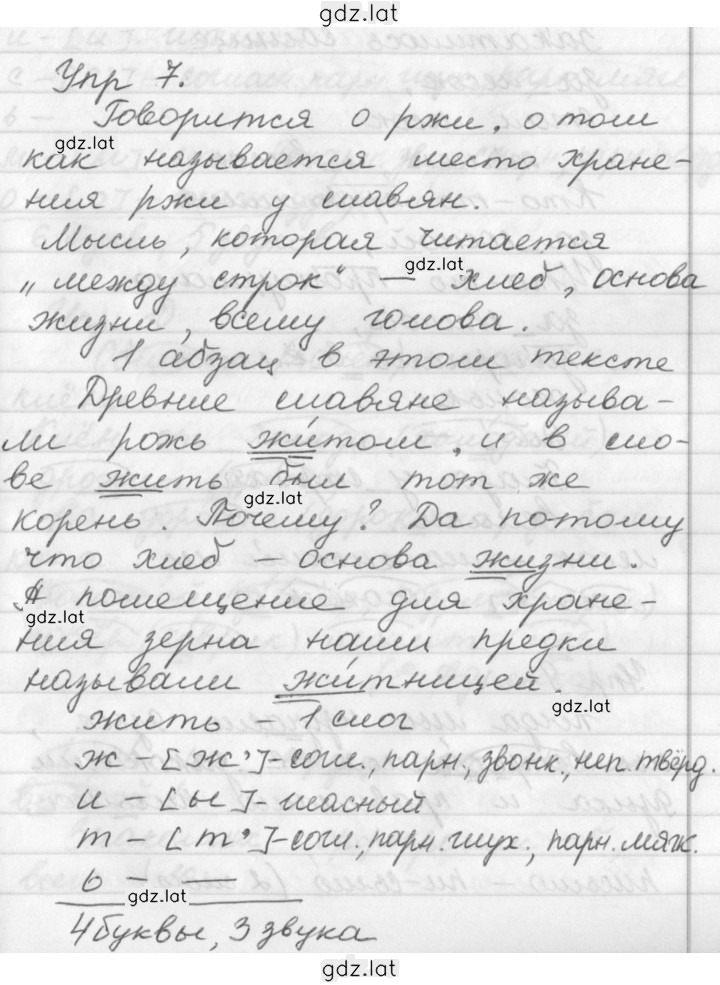 gdz.lat
Упр 7.
Говорится о ржи, о том
gdz.lat
как называется место хране-
ния ржи у славян.
Мысль, которая читается
gdz.lat
„между строк“ — хлеб, основа
жизни, всему голова.
1 абзац в этом тексте
Древние славяне называ-
ли рожь жи́том, и в сло-
ве жить был тот же
gdz.lat
корень. Почему? Да потому
что хлеб – основа жизни.
А помещение для хране-
gdz.lat
ния зерна наши предки
называли жи́тницей.
gdz.lat
жить – 1 слог
ж – [ж’]-согл., парн., звонк., неп. твёрд.
и – [ы]-гласный
т – [т’]-согл., парн. глух., парн. мягк.
ь – —
gdz.lat
4 буквы, 3 звука
gdz.lat